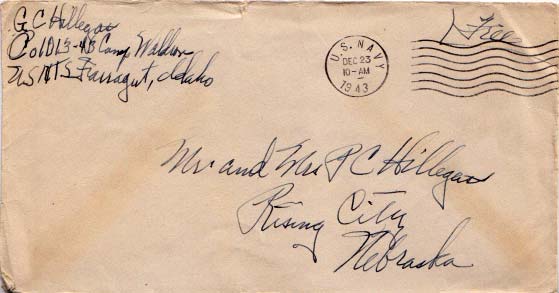 G C Hillegas
Co 1013-43 Camp Waldron
USNTS Farragut, Idaho
Free
U.S. NAVY
DEC 23
10-AM
1943
Mr and Mrs P C Hillegas
Rising City
Nebraska